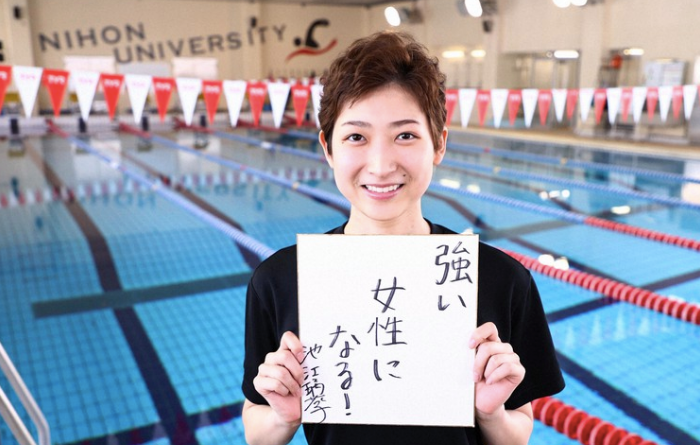 NIHON
UNIVERSITY
強い
女性に
なる！
池江璃花子